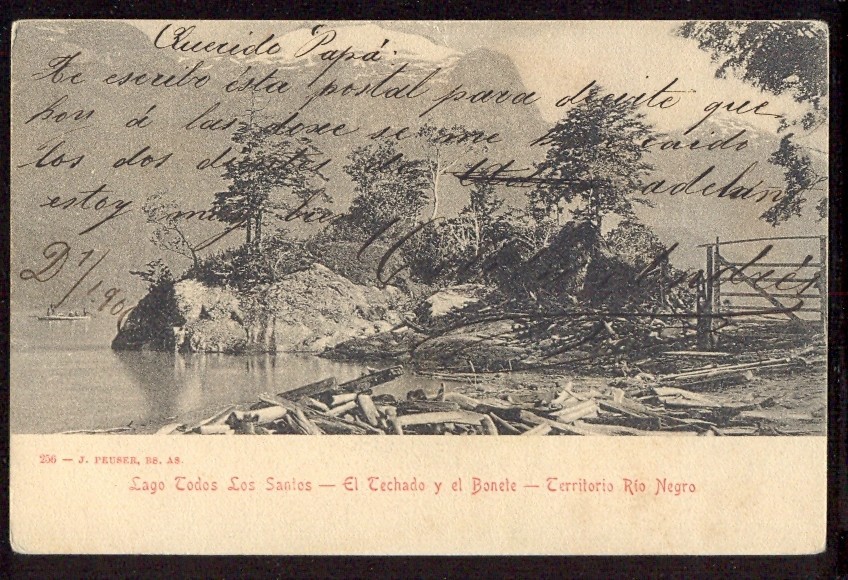 Querido Papá.
Te escribo ésta postal para decirte que
hoy á las doce se me ha caido
los dos dientes de adelante
estoy muy bien
D 1/1.90
256 — J. PEUSER, BS. AS.
Lago Todos Los Santos — El Techado y el Bonete — Territorio Río Negro